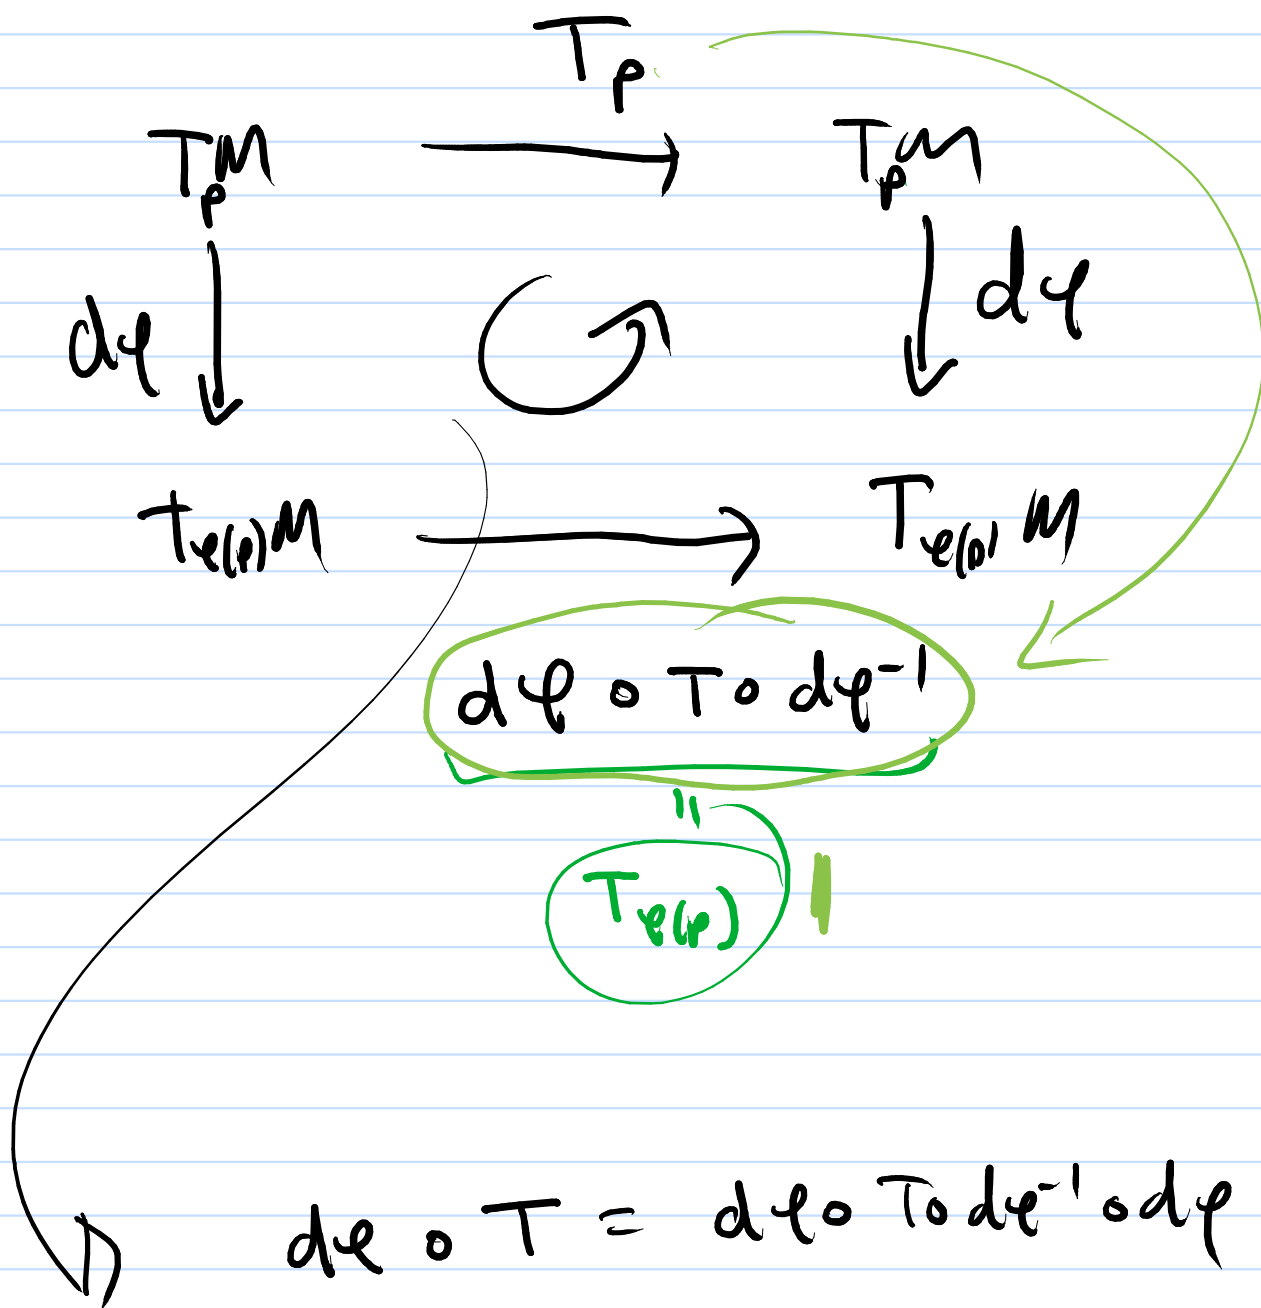 T_p
T_pM → T_pM
dφ ↓ ↓ dφ
T_φ(p)M → T_φ(p)M
dφ ∘ T ∘ dφ⁻¹
||
T_φ(p)
dφ ∘ T = dφ ∘ T ∘ dφ⁻¹ ∘ dφ